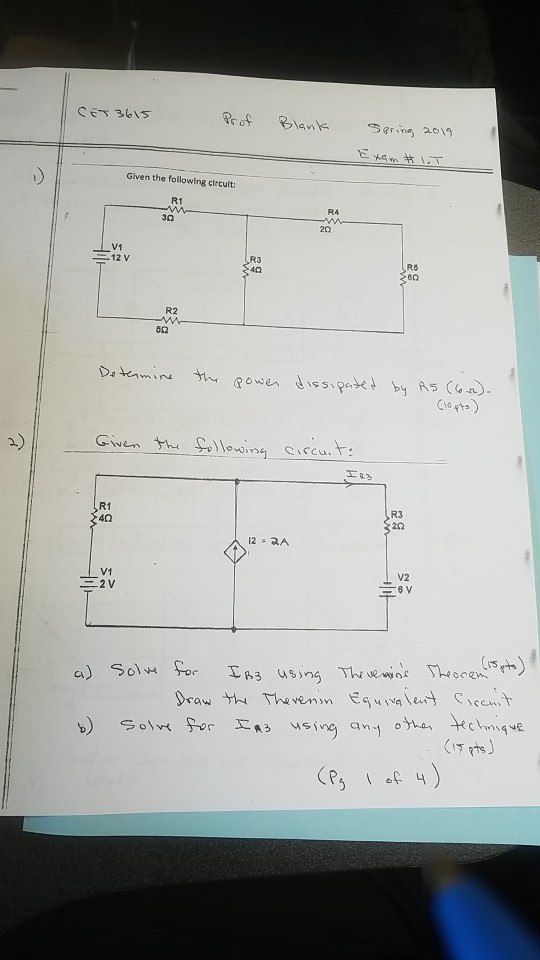 CET 3615 Prof Blank Spring 2019
Exam # 1.T
1)
Given the following circuit:
R1
3Ω
R4
2Ω
V1
12 V
R3
4Ω
R5
6Ω
R2
5Ω
Determine the power dissipated by R5 (6Ω).
(10 pts)
2)
Given the following circuit:
IR3
R1
4Ω
R3
2Ω
I2 = 2A
V1
2 V
V2
6 V
a) Solve for IR3 using Thevenin's Theorem (15 pts)
Draw the Thevenin Equivalent Circuit
b) Solve for IR3 using any other technique
(15 pts)
(Pg 1 of 4)